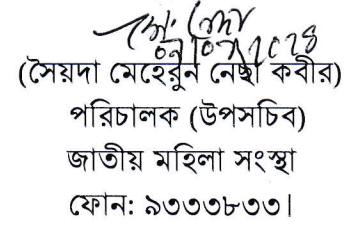 (সৈয়দা মেহেরুন নেছা কবীর)
পরিচালক (উপসচিব)
জাতীয় মহিলা সংস্থা
ফোন: ৯৩৩৩৮৩৩।